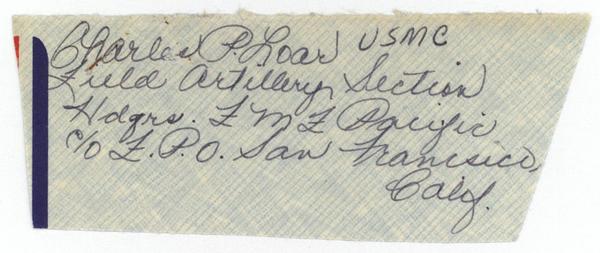 Charles P. Loar USMC
Field Artillery Section
Hdqrs. F M F Pacific
c/o F. P. O. San Francisico,
Calif.